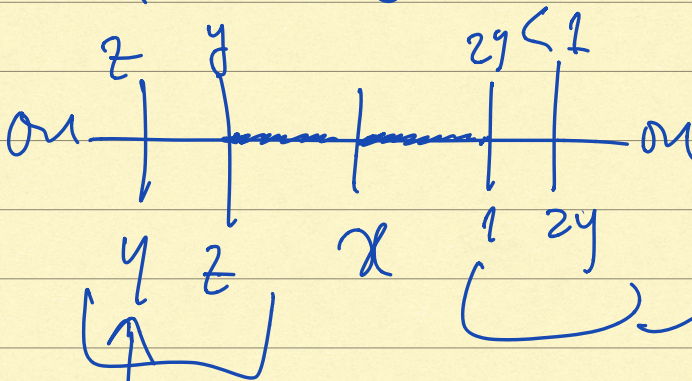 z y 2y < 1
on on
y z x 1 2y